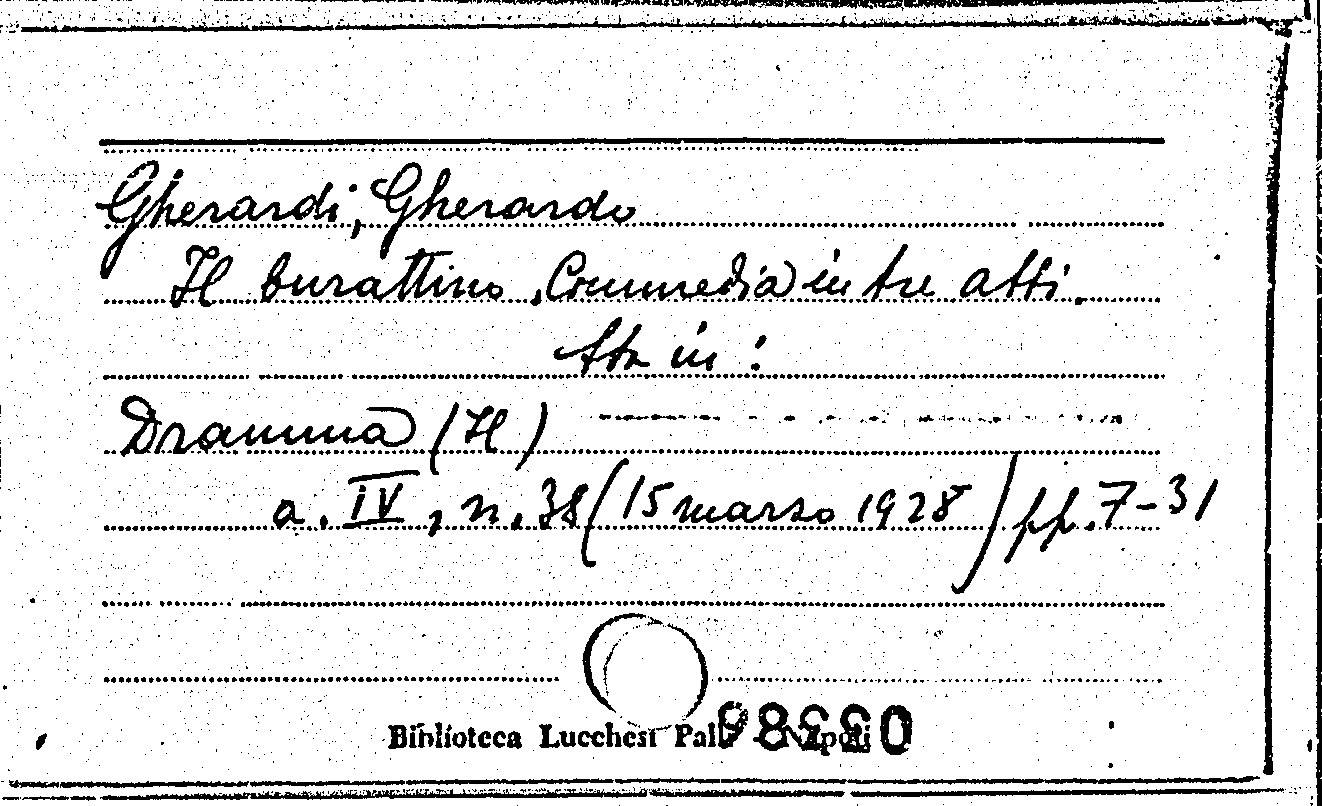 Gherardi, Gherardo
Il burattino. Commedia in tre atti.
Sta in:
Dramma (Il)
a. IV, n. 38 (15 marzo 1928) pp. 7-31
Biblioteca Lucchesi Palli - Napoli